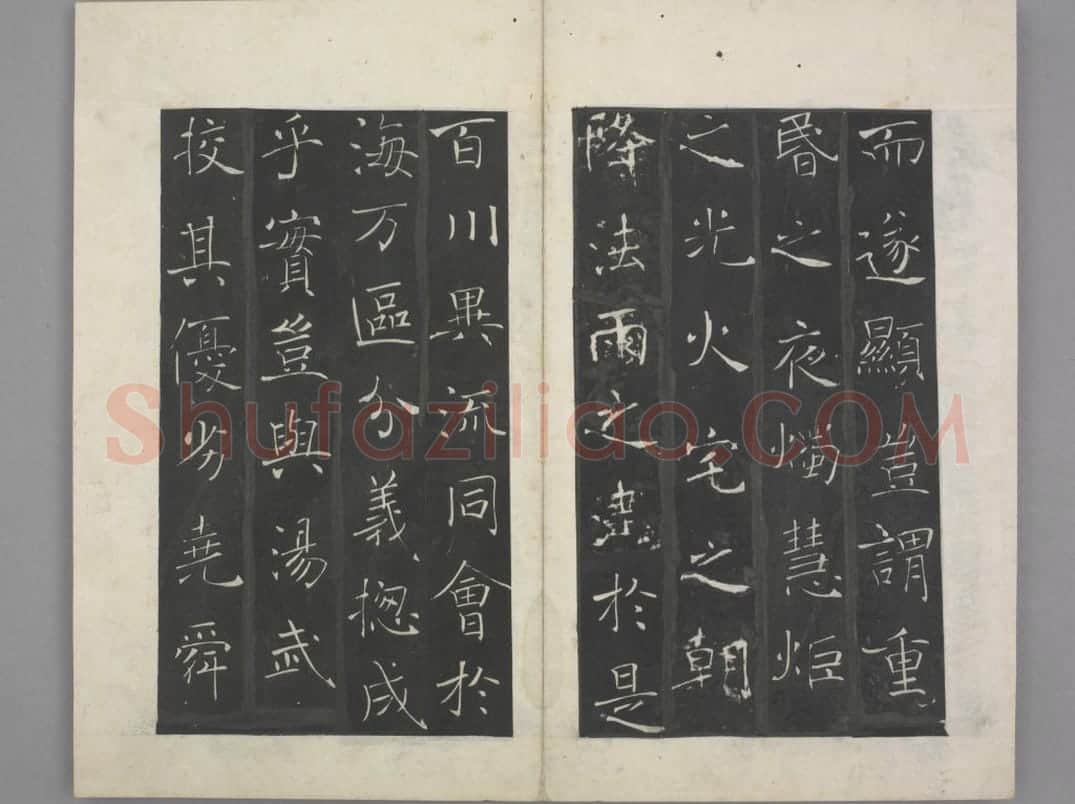 而遂顯豈謂重
昬之夜燭慧炬
之光火宅之朝
降法雨之津於是
百川異流同會於
海万區分義揔成
乎實豈與湯武
挍其優劣堯舜
Shufaziliao.COM